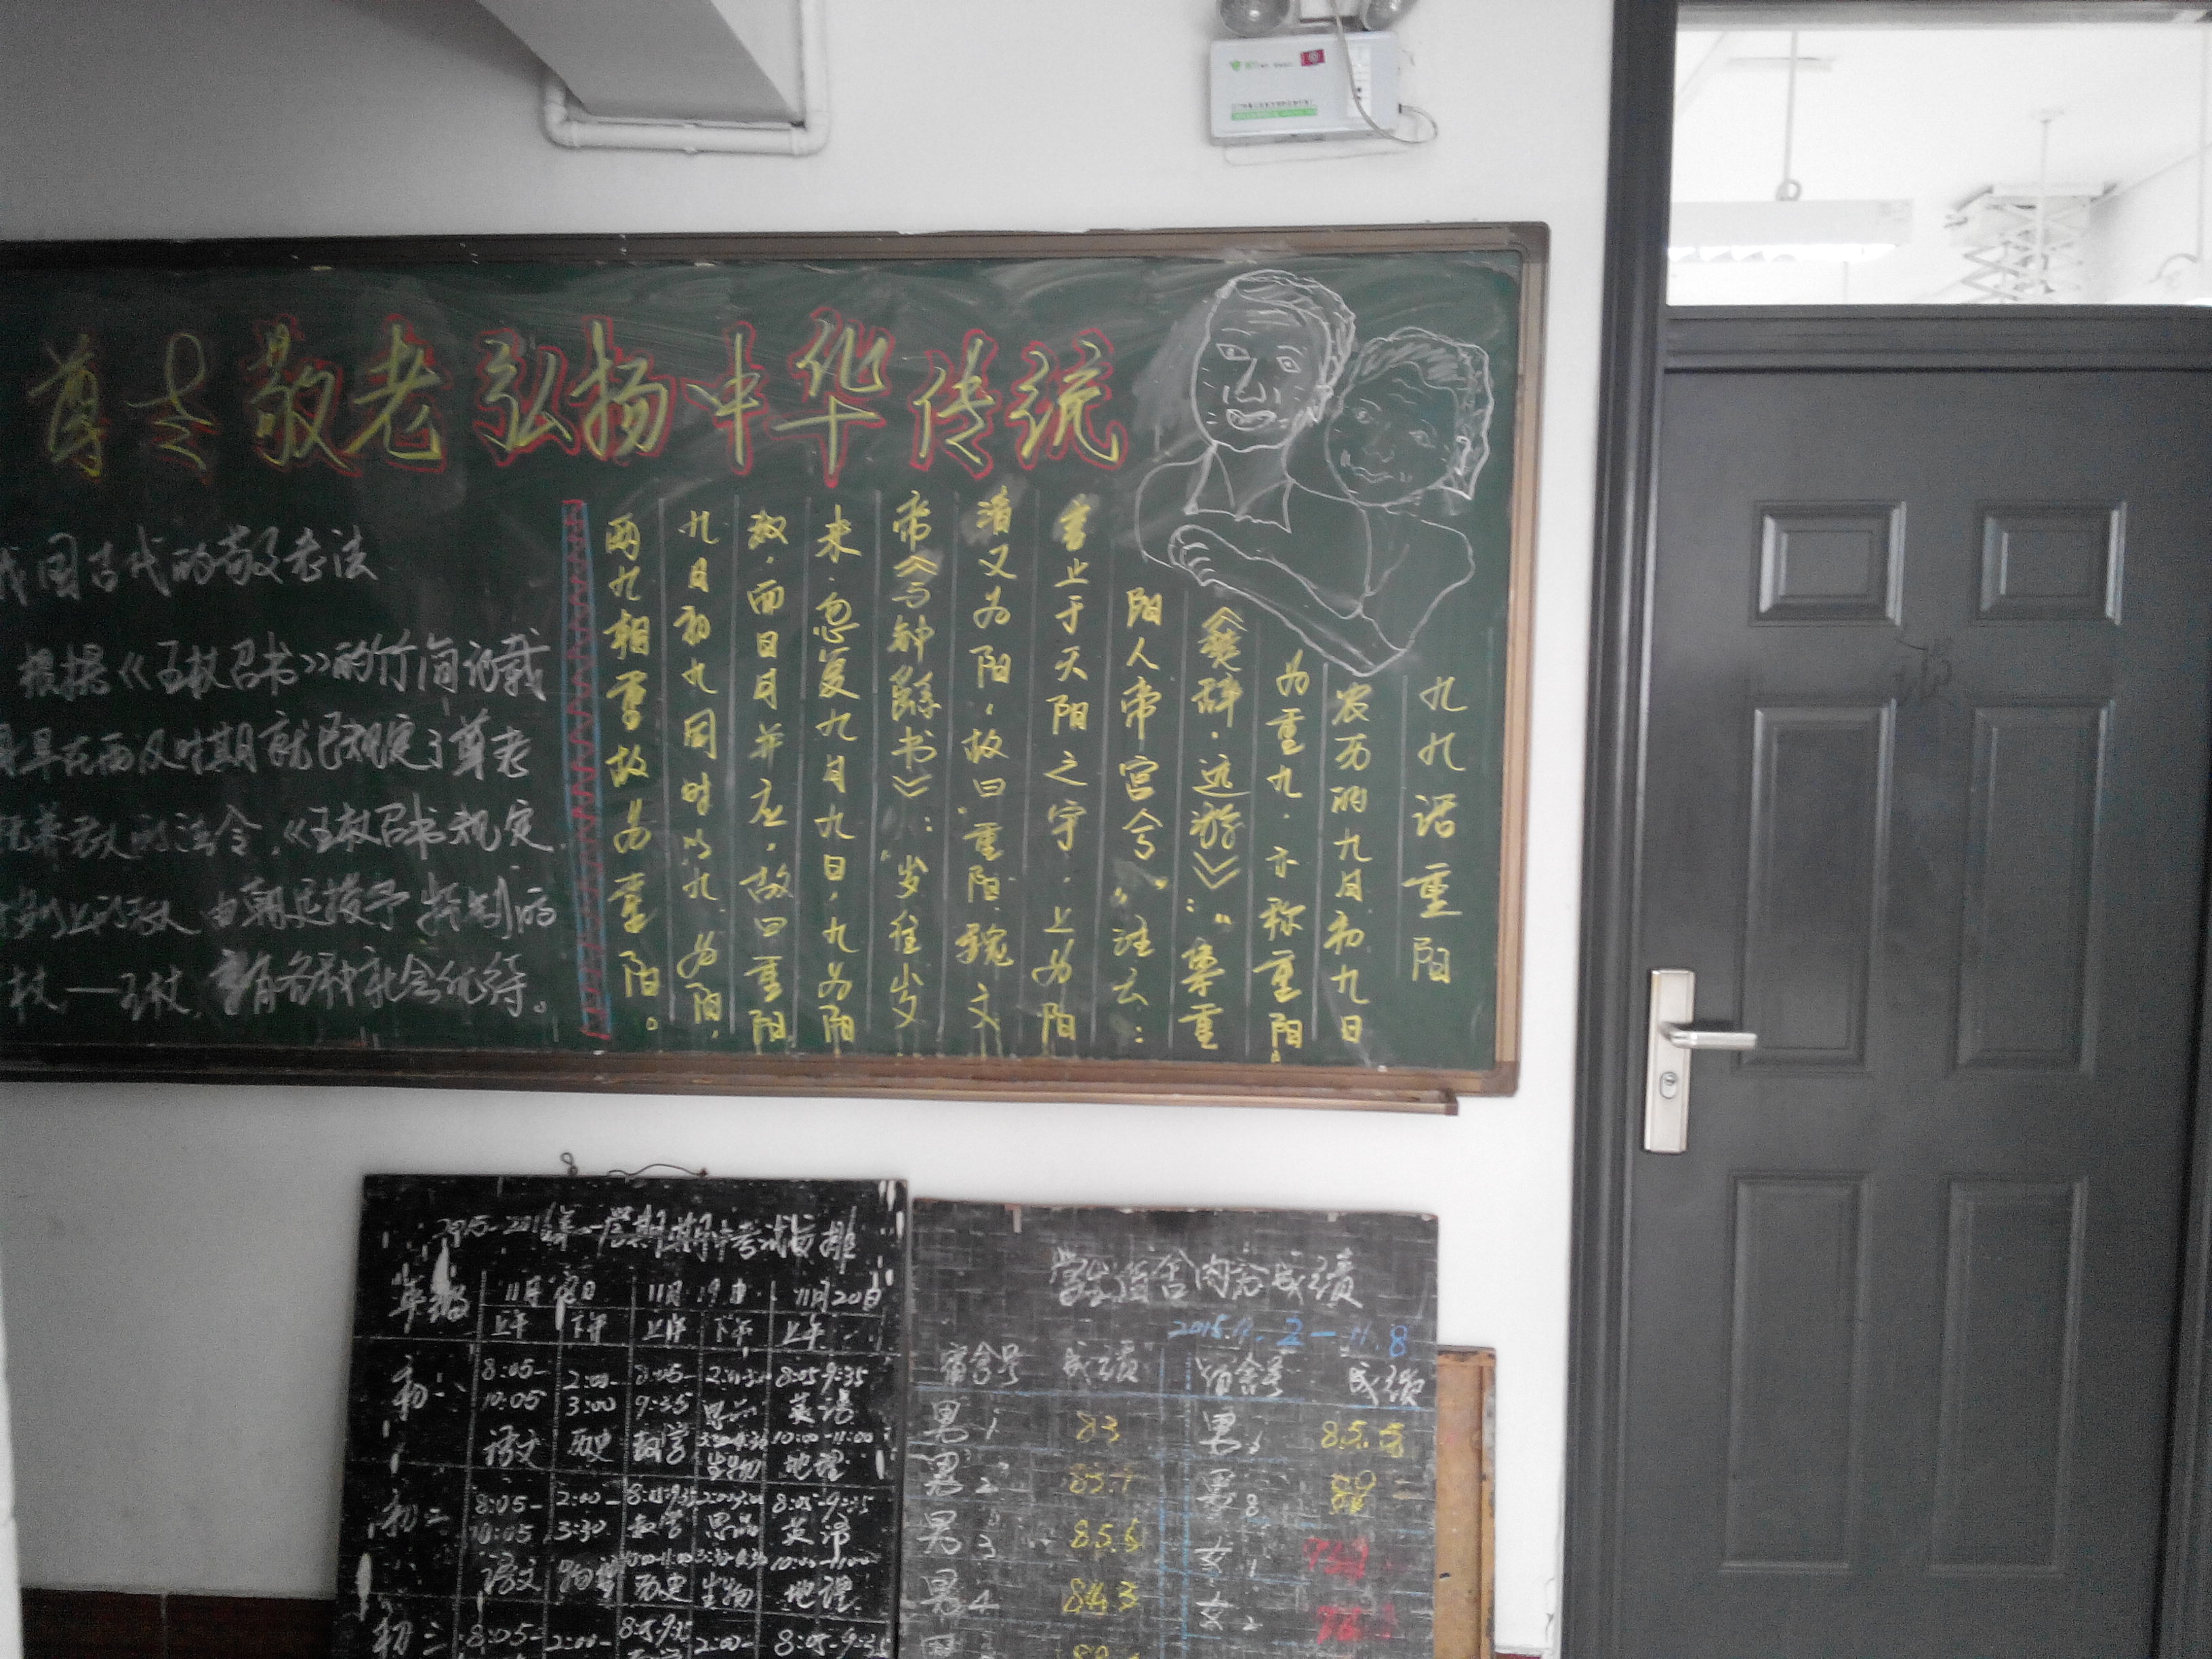 尊老敬老弘扬中华传统
我国古代的敬老法
根据《王杖诏书》的竹简记载
早在西汉时期就已规定了尊老
养老的法令,《王杖诏书规定
以上的老人由朝廷授予特制的
杖—王杖,享有各种社会优待。
九九话重阳
农历的九月初九日
为重九.亦称重阳。
《楚辞.远游》:“集重
阳人帝宫兮”注云:
言止于天阳之宇.上为阳
清又为阳,故曰重阳.魏文
帝《与钟繇书》:“岁往月
来.忽复九月九日,九为阳
数.而日月并应.故曰重阳
九月初九同时以九为阳,
两九相重故为重阳。
2015-201 第一学期期中考试安排
年级 11月 日 11月19日 11月20日
上午 下午 上午 下午 上午
初一 8:05- 2:00- 8:05- 8:05-9:35
10:05 3:00 9:35 思品 英语
语文 历史 数学 10:00-11:00
生物 地理
初二 8:05- 2:00- 8:05-9:35 8:05-9:35
10:05 3:30 数学 思品 英语
语文 物理 历史 生物 地理
初三 8:05- 2:00- 8:05-9:35 2:00- 8:05-9:35
学生宿舍内务成绩
2015.11.2-11.8
宿舍号 成绩 宿舍号 成绩
男1 83 男 85.5
男2 男8
男3 85.5 女1
男4 84.3 女2